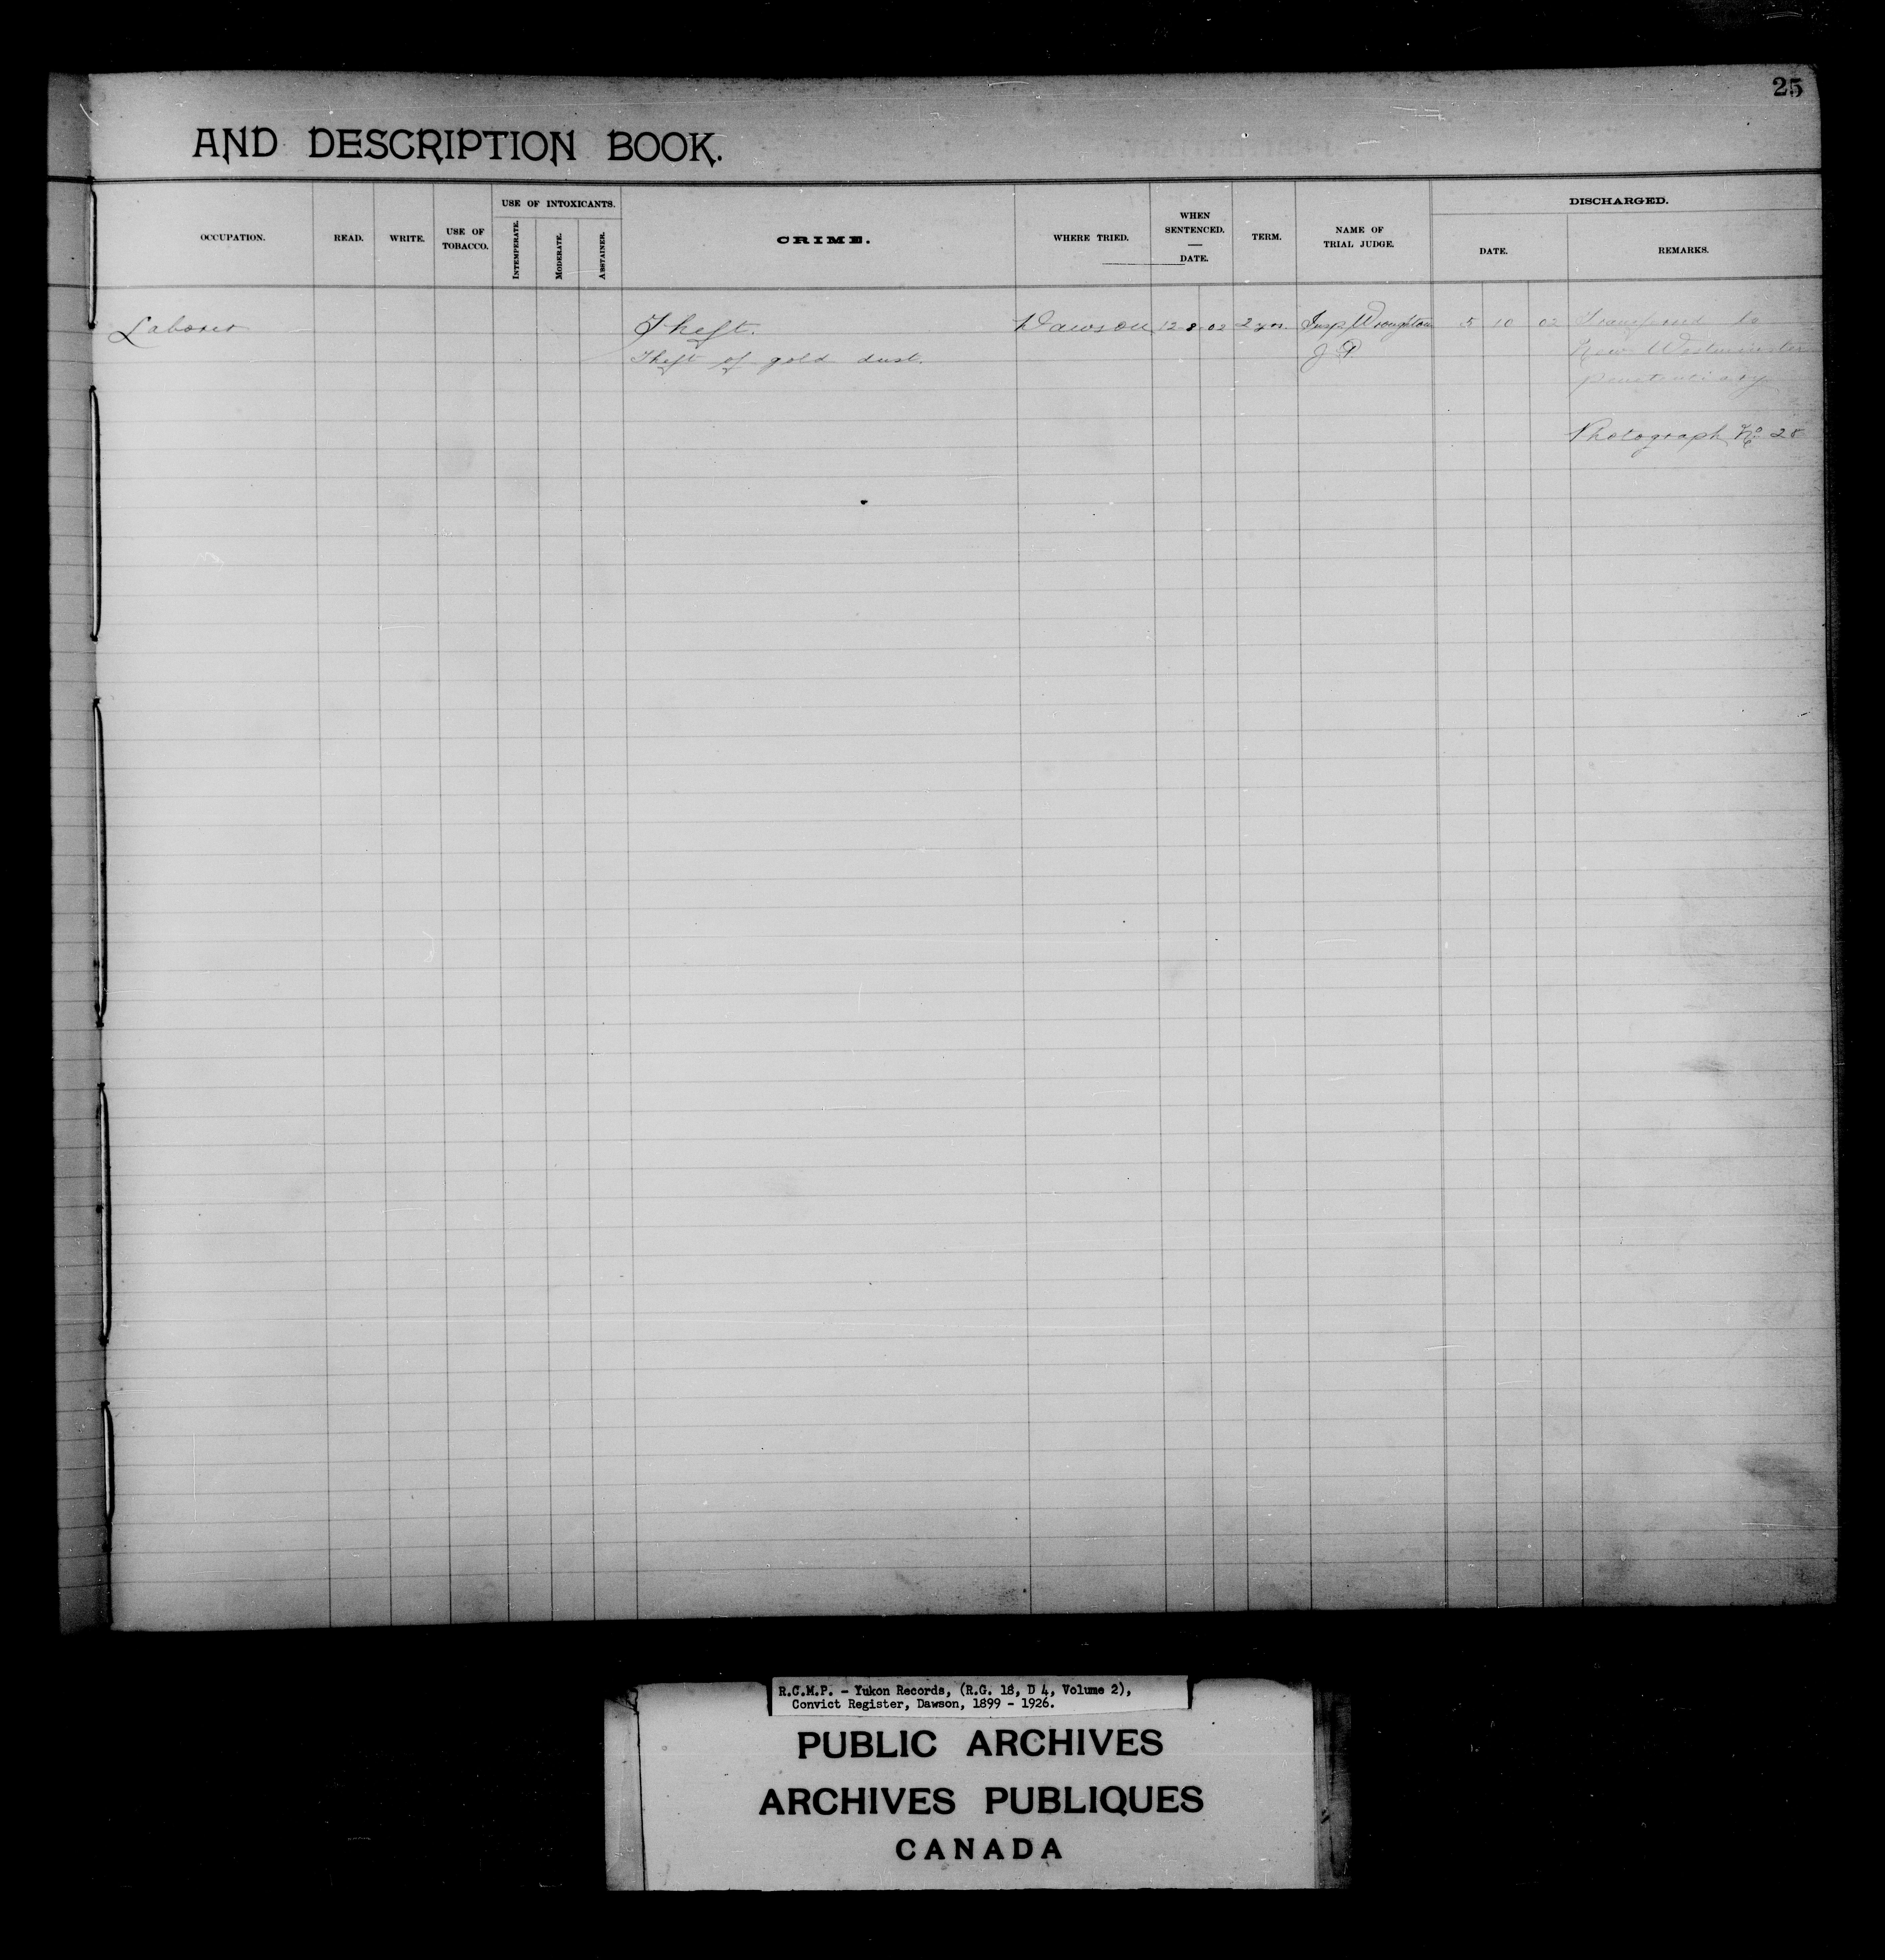 25
AND DESCRIPTION BOOK.
OCCUPATION.
READ.
WRITE.
USE OF
TOBACCO.
USE OF INTOXICANTS.
INTEMPERATE.
MODERATE.
ABSTAINER.
CRIME.
WHERE TRIED.
WHEN
SENTENCED.
DATE.
TERM.
NAME OF
TRIAL JUDGE.
DISCHARGED.
DATE.
REMARKS.
Laborer Theft. Dawson 12 8 02 2 yrs. Insp Wroughton 5 10 02 Transferred to
Theft of gold dust. J P. New Westminster
penetentiary
Photograph No
R.C.M.P. - Yukon Records, (R.G. 18, D 4, Volume 2),
Convict Register, Dawson, 1899 - 1926.
PUBLIC ARCHIVES
ARCHIVES PUBLIQUES
CANADA